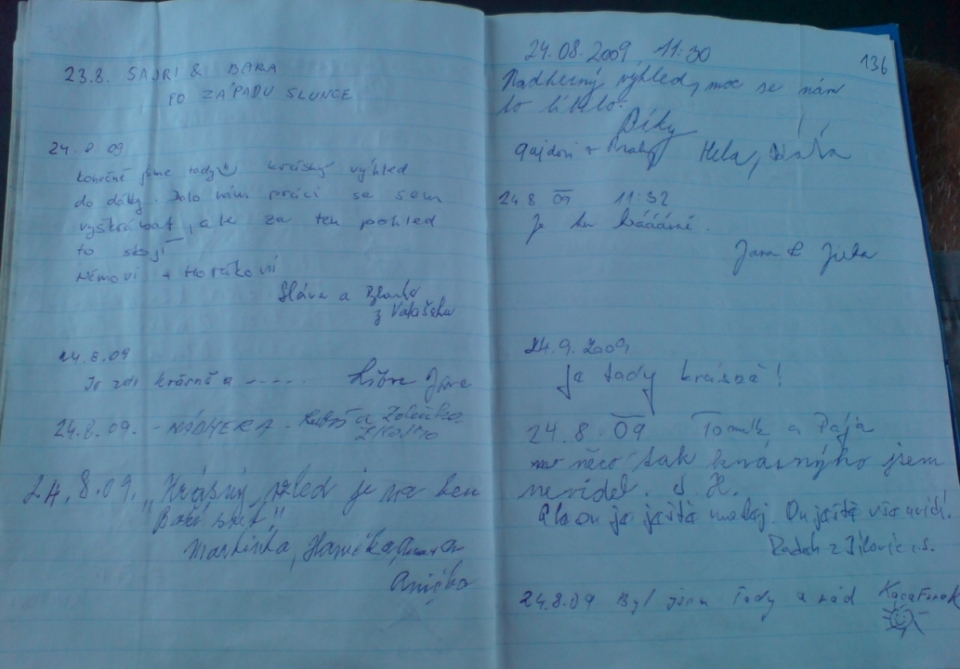 23.8. SAJRI & BARA
PO ZÁPADU SLUNCE
24.8.09
konečně jsme tady krásný výhled
do dálky. Dalo nám práci se sem
vyškrábat, ale za ten pohled
to stojí
Němovi + Horákovi
Sláva a Blanka
z Valašska
24.8.09
Je zde krásně a -----
24.8.09. - NÁDHERA -
24.8.09. "Krásný pohled je na ten
Boží svět."
Martinka, Hanička
Anička
136
24.08.2009 11:30
Nádherný výhled, moc se nám
to líbilo.
Díky
Hela, Bára
24.8 09 11:32
Je tu bááávně.
Jana & Jirka
24.9.2009
Je tady krásně!
24.8.09 Tomík a Pája
no něco tak krásnýho jsem
neviděl. J H.
Ale on je ještě malej. On ještě vše uvidí!
Radek z Jílovic
24.8.09 Byl jsem tady a rád